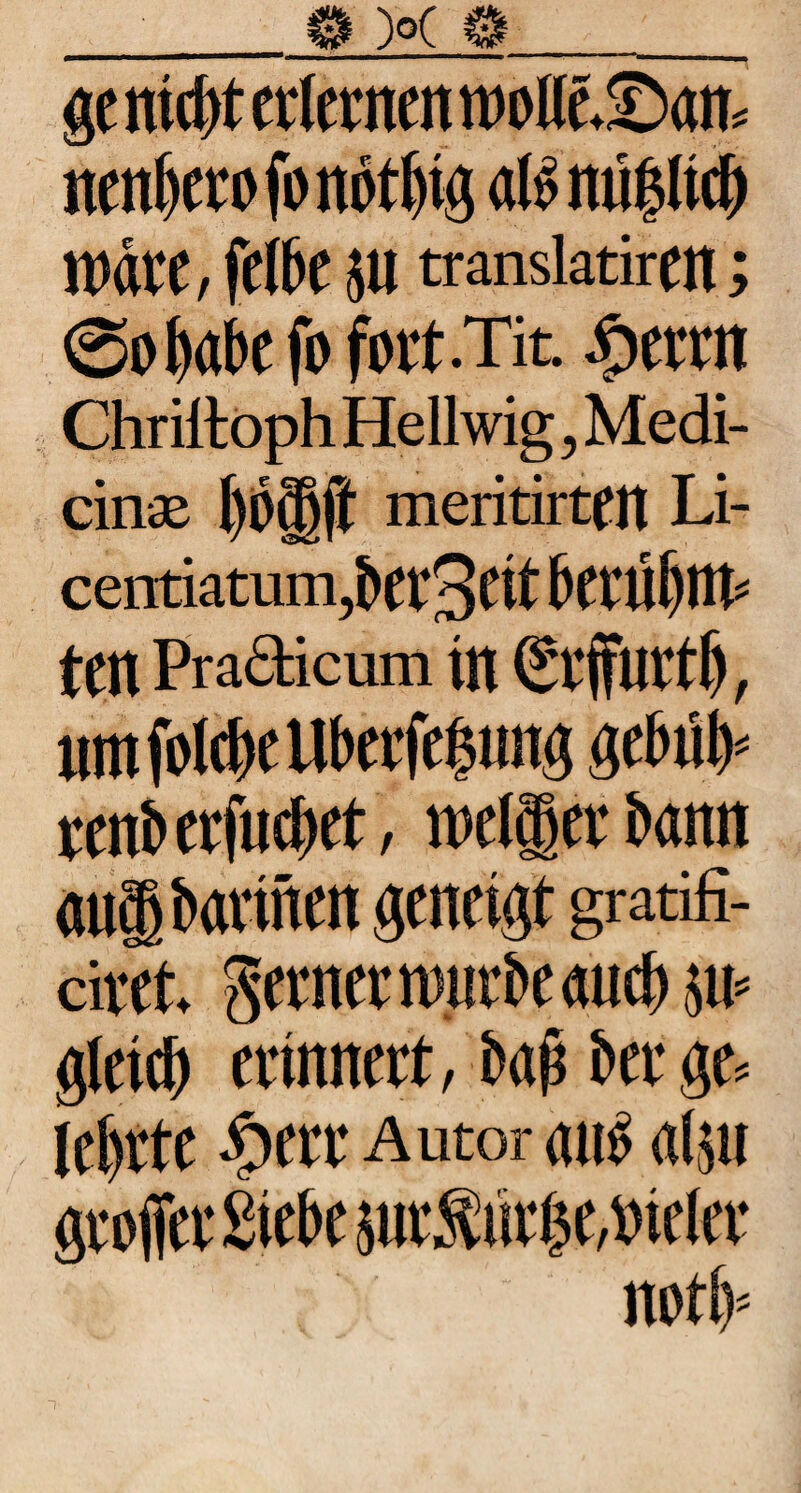 )o(
ge nicht erlernen wolle. Dan-
nenhero so nöthig als nützlich
wäre, selbe zu translatiren;
So habe so fort. Tit. Herrn
Chriſtoph Hellwig, Medi-
cinæ höchst meritirten Li-
centiatum, der Zeit berühm-
ten Practicum in Erffurth,
um solche Ubersetzung gebüh-
rend ersuchet, welcher dann
auch darinnen geneigt gratifi-
ciret. Ferner wurde auch zu-
gleich erinnert, daß der ge-
lehrte Herr Autor aus alzu
grosser Liebe zur Kürtze, vieler
noth-